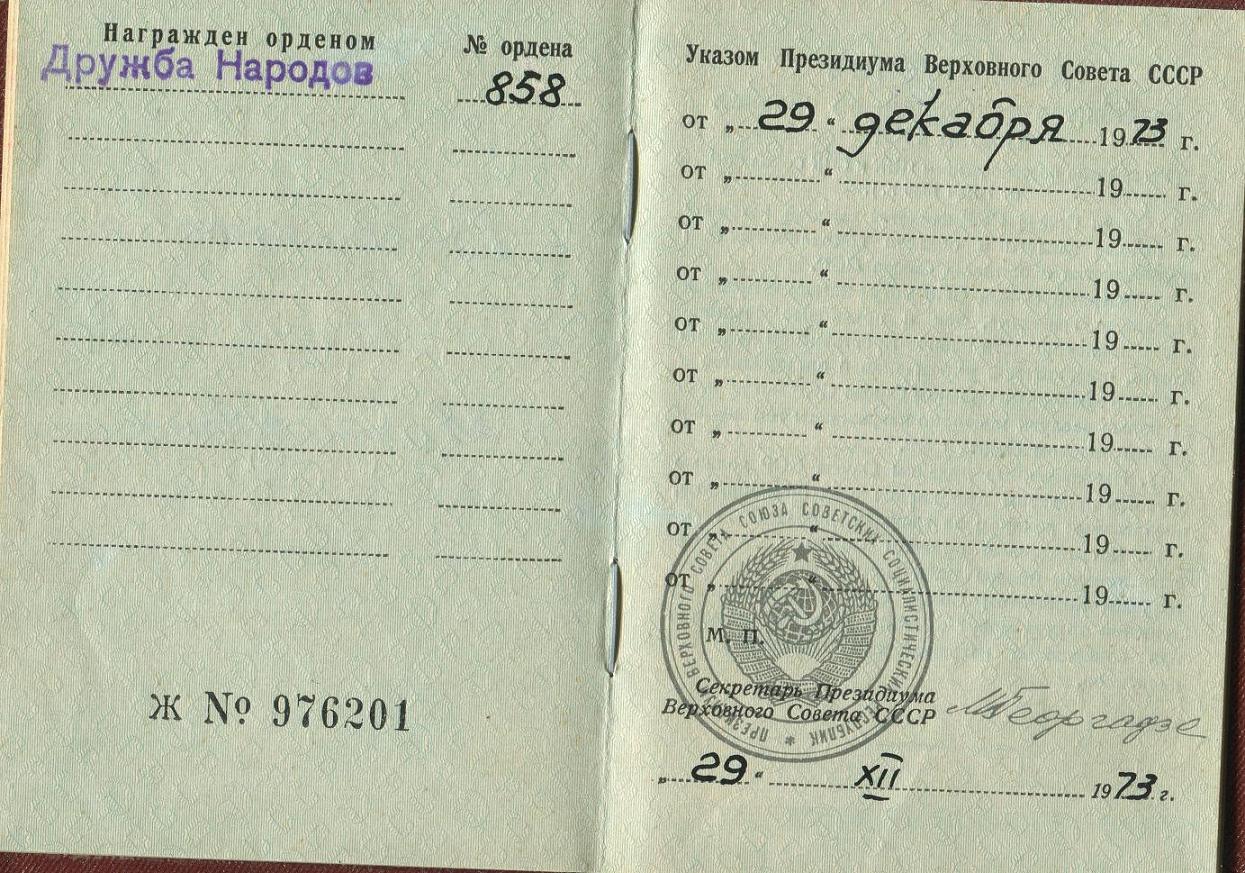 Награжден орденом
№ ордена
Дружба Народов
858
Ж № 976201
Указом Президиума Верховного Совета СССР
от „ 29 “ декабря 1973 г.
от „ “ 19 г.
от „ “ 19 г.
от „ “ 19 г.
от „ “ 19 г.
от „ “ 19 г.
от „ “ 19 г.
от „ “ 19 г.
от „ “ 19 г.
от „ “ 19 г.
ПРЕЗИДИУМ ВЕРХОВНОГО СОВЕТА СОЮЗА СОВЕТСКИХ СОЦИАЛИСТИЧЕСКИХ РЕСПУБЛИК
М. П.
Секретарь Президиума
Верховного Совета СССР
МГеоргадзе
„ 29 “ XII 1973 г.